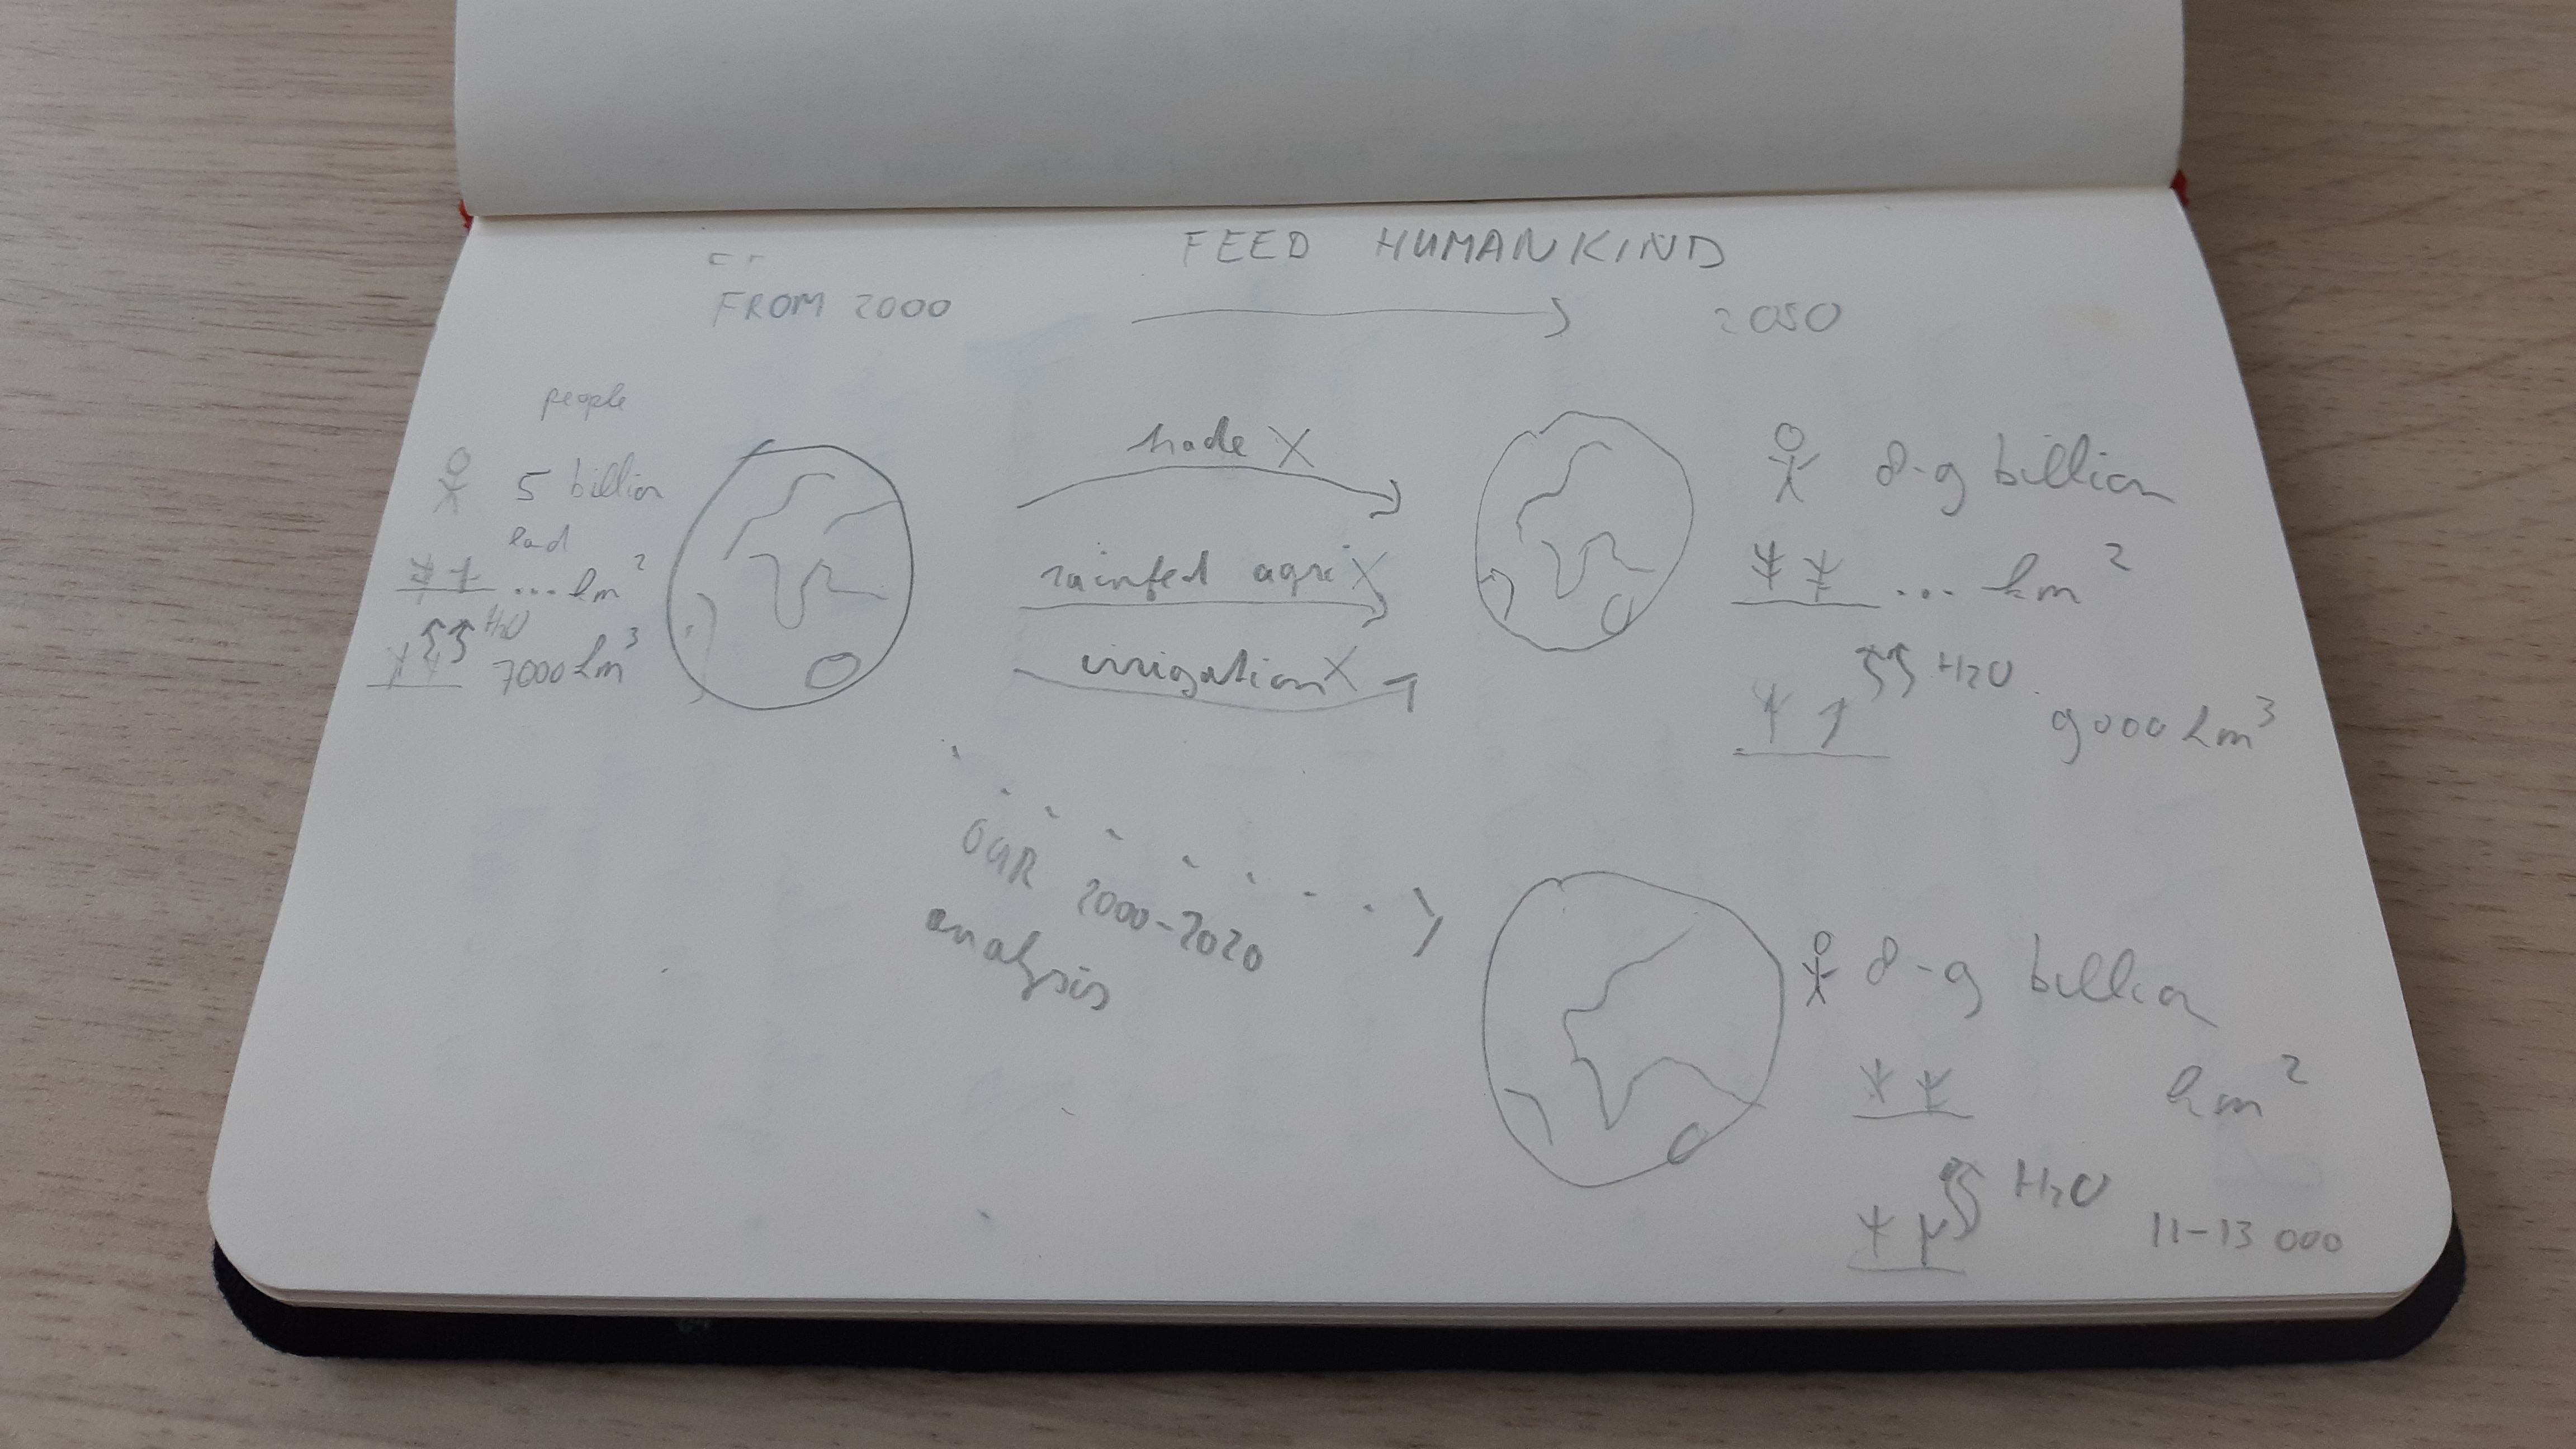 FEED HUMANKIND
FROM 2000
2050
people
5 billion
land
... km²
H2O
7000 km³
trade X
rainfed agri X
irrigation X
8-9 billion
... km²
H2O
9000 km³
OUR 2000-2020
analysis
8-9 billion
km²
H2O
11-13 000